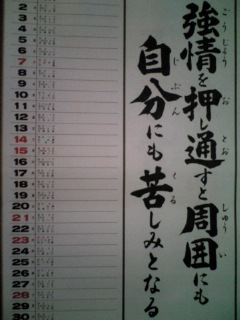 強情を押し通すと周囲にも
自分にも苦しみとなる
ごうじょう
お
とお
しゅうい
じぶん
くる
2
3
4
5
6
7
8
9
10
11
12
13
14
15
16
17
18
19
20
21
22
23
24
25
26
27
28
29
30